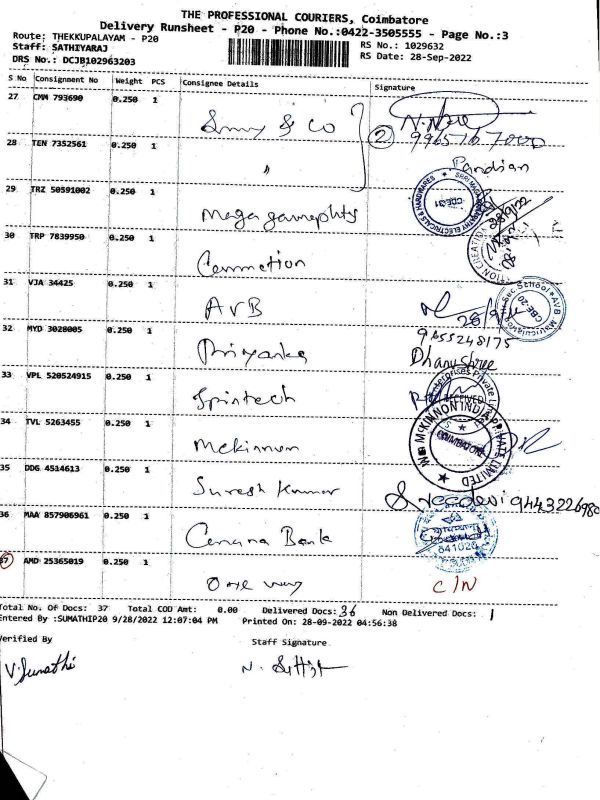 THE PROFESSIONAL COURIERS, Coimbatore
Delivery Runsheet - P20 - Phone No.:0422-3505555 - Page No.:3
Route: THEKKUPALAYAM - P20
RS No.: 1029632
Staff: SATHIYARAJ
RS Date: 28-Sep-2022
DRS No.: DCJB102963203
S No Consignment No Weight PCS Consignee Details Signature
27 CMM 793690 0.250 1 & Co
2
28 TEN 7352561 0.250 1 "
Pandian
29 TRZ 50591002 0.250 1
30 TRP 7839950 0.250 1
31 VJA 34425 0.250 1 AVB
32 MYD 3028005 0.250 1 Priyanka 9655248175
Dhanushree
33 VPL 520524915 0.250 1 Spintech
34 TVL 5263455 0.250 1 Mckinnon
35 DDG 4514613 0.250 1 Suresh Kumar Sreedevi
36 MAA 857906961 0.250 1 Canara Bank
641020
37 AMD 25365019 0.250 1 One way C/N
Total No. Of Docs: 37 Total COD Amt: 0.00 Delivered Docs: 36 Non Delivered Docs: 1
Entered By :SUMATHIP20 9/28/2022 12:07:04 PM Printed On: 28-09-2022 04:56:38
Verified By Staff Signature